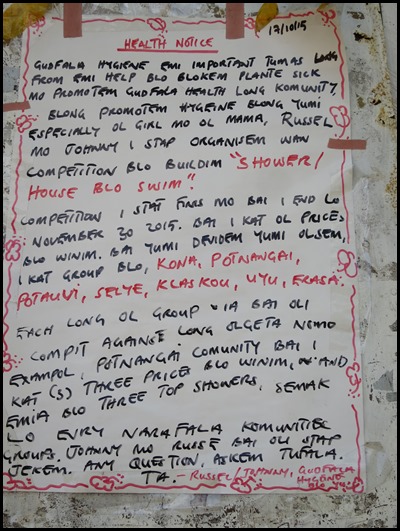 17/10/15
HEALTH NOTICE
GUDFALA HYGIENE EMI IMPORTANT TUMAS LONG
FROM EMI HELP BLO BLOKEM PLANTE SICK
MO PROMOTEM GUDFALA HEALTH LONG KOMUNITY,
BLONG PROMOTEM HYGEINE BLONG YUMI
ESPECIALLY OL GIRL MO OL MAMA, RUSSEL
MO JOHNNY I STAP ORGANISEM WAN
COMPETITION BLO BUILDIM "SHOWER/
HOUSE BLO SWIM".
COMPETITION I STAT FINIS MO BAI I END LO
NOVEMBER 30 2015. BAI I KAT OL PRICES
BLO WINIM. BAI YUMI DEVIDEM YUMI OLSEM,
I KAT GROUP BLO, KONA, POTNANGAI,
POTAUWI, SELYE, KLASKOU, UYU, ERASA.
EACH LONG OL GROUP IA BAI OLI
COMPIT AGAINST LONG OLGETA NOMO
EXAMPOL, POTNANGAI COMUNITY BAI I
KAT (3) THREE PRICES BLO WINIM, AND
EMIA BLO THREE TOP SHOWERS, SEMAK
LO EVRY NARAFALA KOMUNITIEC
GROUPS. JOHNNY MO RUSSE BAI OLI STAP
JEKEM. ANY QUESTION, ASKEM TUFALA.
TA. - RUSSEL/JOHNNY, GUDFALA
HYGENE
BLO